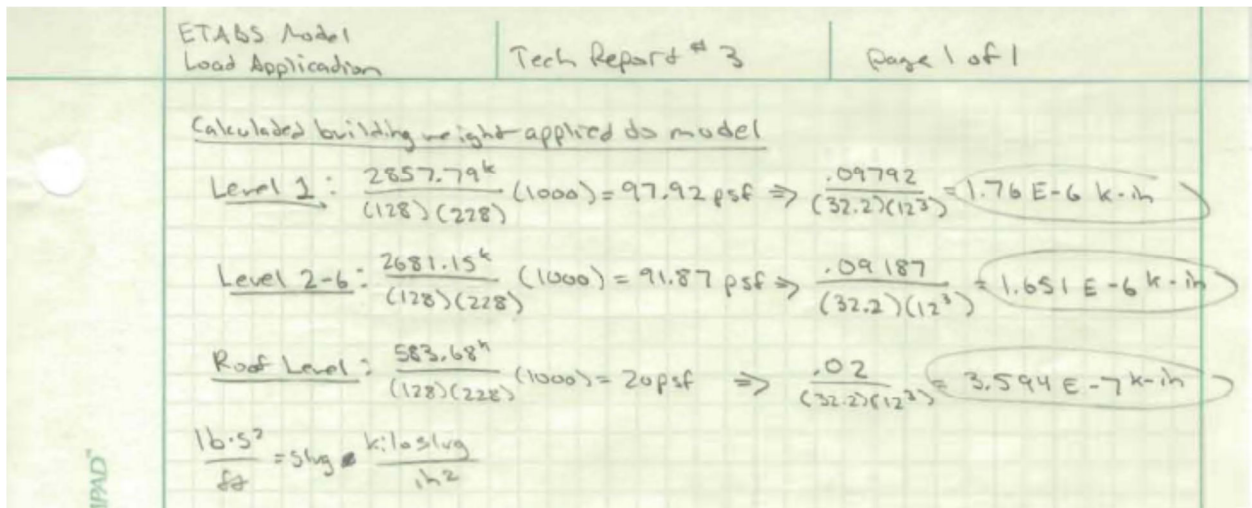 ETABS Model
Load Application
Tech Report # 3
Page 1 of 1
Calculated building weight applied to model
Level 1: 2857.79ᵏ / (128)(228) (1000) = 97.92 psf ⇒ .09792 / (32.2)(12³) = 1.76 E-6 k-in
Level 2-6: 2681.15ᵏ / (128)(228) (1000) = 91.87 psf ⇒ .09187 / (32.2)(12³) = 1.651 E-6 k-in
Roof Level: 583.68ᵏ / (128)(228) (1000) = 20psf ⇒ .02 / (32.2)(12³) = 3.594 E-7 k-in
lb·s² / ft = slug kiloslug / in²
MPAD™